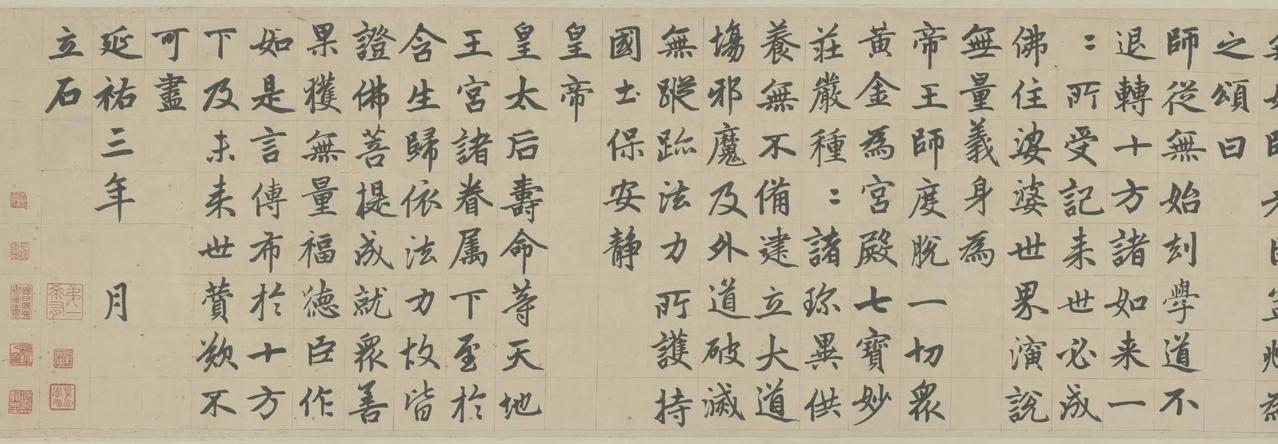 之頌曰
師從無始刦學道不
退轉十方諸如来一
〻所受記来世必成
佛住娑婆世界演說
無量義身為
帝王師度脫一切衆
黃金為宮殿七寶妙
莊嚴種〻諸珎異供
養無不備建立大道
場邪魔及外道破滅
無蹤跡法力所護持
國土保安静
皇帝
皇太后壽命等天地
王宮諸眷屬下至於
含生歸依法力故皆
證佛菩提成就衆善
果獲無量福德臣作
如是言傳布於十方
下及未来世贊歎不
可盡
延祐三年 月
立石